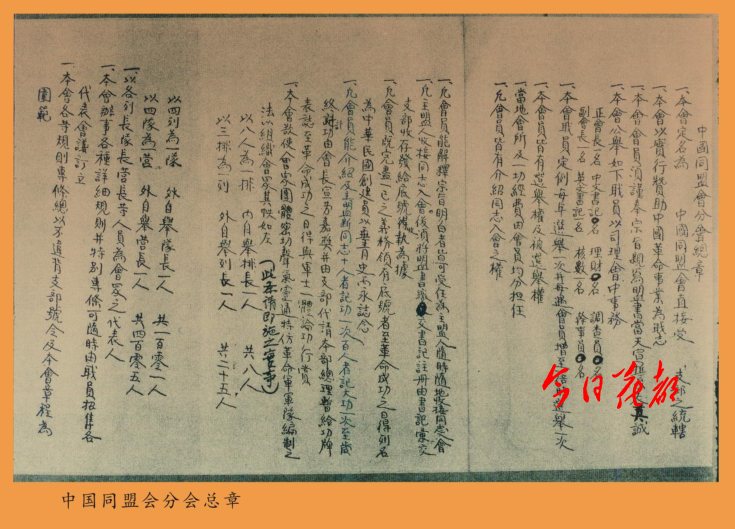 中國同盟會分會總章
一、本會定名為 中國同盟會直接受 支部之統轄
一、本會以實行贊助中國革命事業為職志
一、本會會員須謹奉宗旨 為明盟書當天宣 其誠
一、本會公舉如下職員以司理會中事務
正會長一名 中文書記 名 理財 名 調查員 名
副會長一名 英文書記一名 核數 名 幹事員 名
一、本會職員定例每年選舉一次并每遇會員增至 選舉一次
一、本會會員皆有選舉權及被選舉權
一、當地會所及一切經費由會員均分担任
一、凡會員皆有介紹同志入會之權
一、凡會員能解釋宗旨明白者皆可受任為主盟人隨時隨地收接同志入會
一、凡主盟人收接同志入會後須將盟書繳 文書記註冊由書記彙交
支部收存發給底號 執為據
一、凡會員既完盡一己之義務領有底號者至革命成功之日得列名
為中華民國創建員以垂青史而永誌念
一、凡會員能介紹及主盟新同志十人者記功一次百人者記大功一次至歲
終計功由會長宣 并由支部代請本部總理暫給功牌
表誌至革命成功之日得與軍士一體論功行賞
一、本會欲使會眾團體密切聲氣靈通特仿革命軍軍隊編制之
法以組織會眾其跌如左 (此 請即施之 )
以八人為一排 內自舉排長一人 共八人
以三排為一列 外自舉列長一人 共二十五人
以四列為一隊 外自舉隊長一人 共一百零一人
以四隊為一營 外自舉營長一人 共四百零五人
一、以各列長隊長營長等人員為會眾之代表人
一、本會辦事各種詳細規則并特別專條可隨時由職員招集各
代表會議訂立
一、本會各等規則專條總以不違背支部號令及本會章程為
圍範
今日花都
中国同盟会分会总章